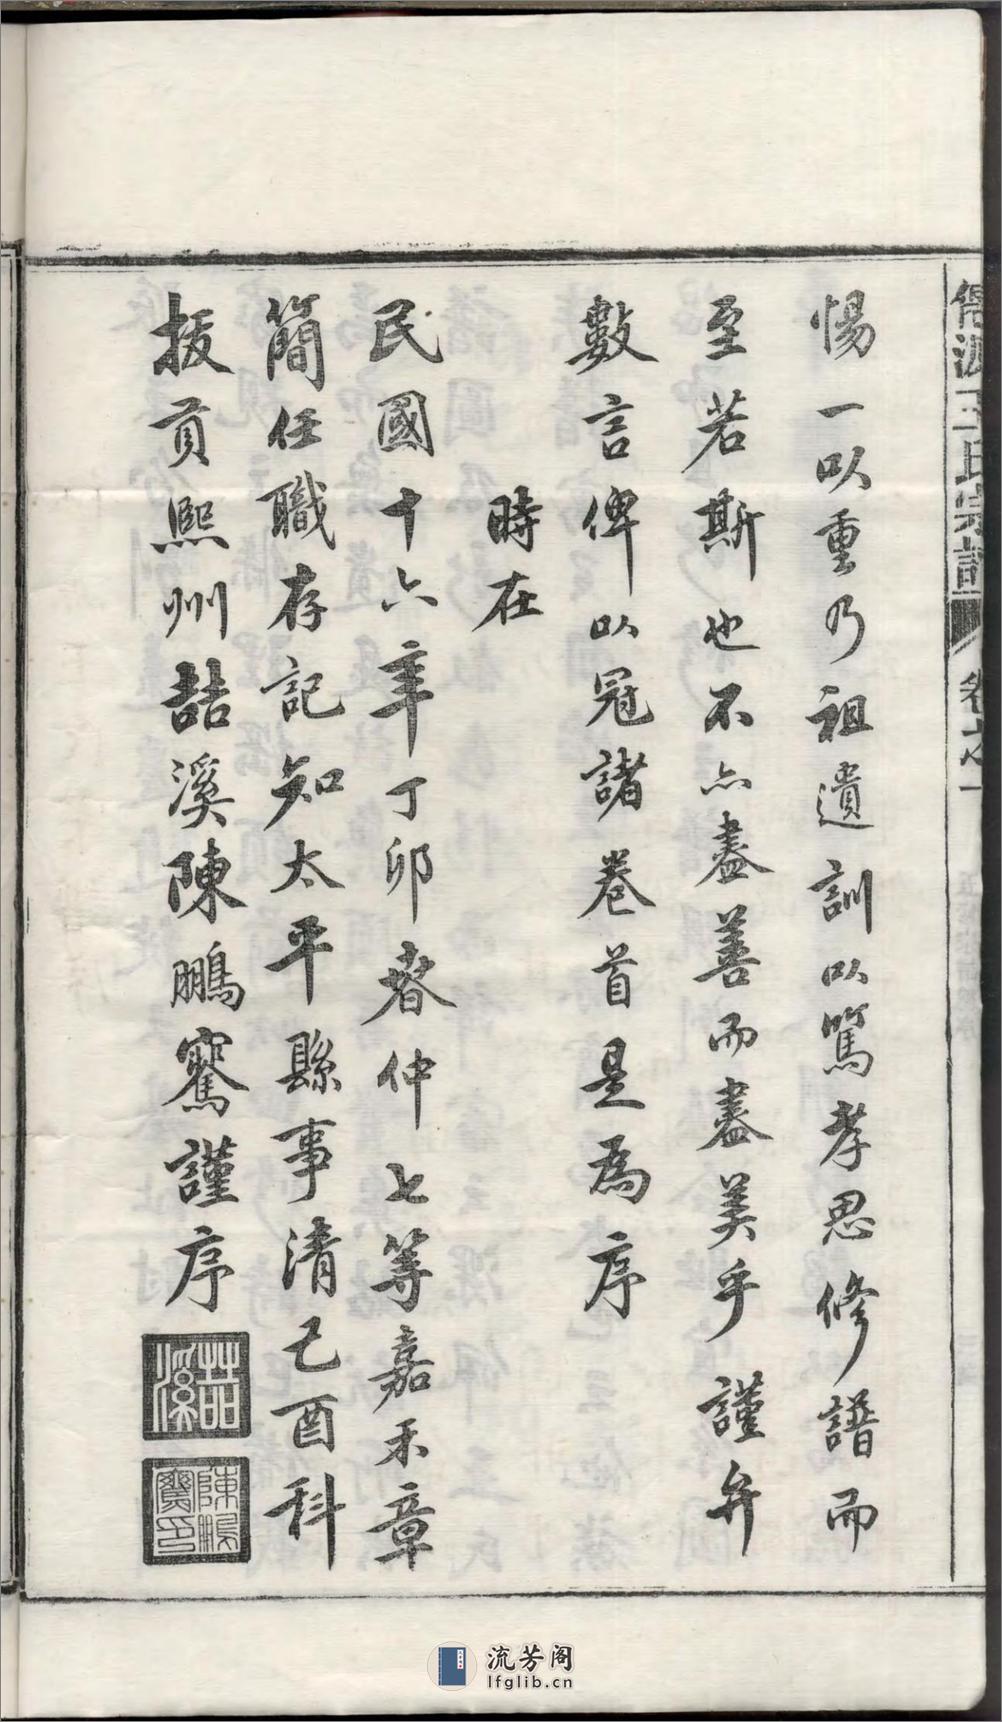 王氏宗譜 卷之一
惕一以重乃祖遺訓以篤孝思修譜而
至若斯也不亦盡善而盡美乎謹弁
數言俾以冠諸卷首是為序
時在
民國十六年丁卯春仲七等嘉禾章
簡任職存記知太平縣事清己酉科
拔貢熙州喆溪陳鵬騫謹序
喆溪
陳鵬騫印
流芳阁
lfglib.cn